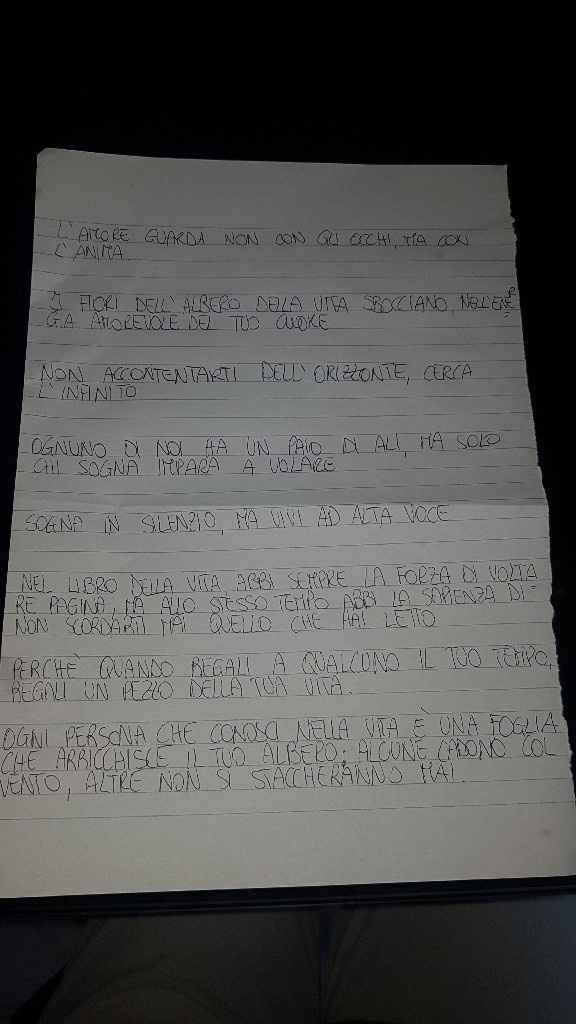 L'AMORE GUARDA NON CON GLI OCCHI, MA CON
L'ANIMA
I FIORI DELL'ALBERO DELLA VITA SBOCCIANO, NELL'ENER
GIA AMOREVOLE DEL TUO CUORE
NON ACCONTENTARTI DELL'ORIZZONTE, CERCA
L'INFINITO
OGNUNO DI NOI HA UN PAIO DI ALI, MA SOLO
CHI SOGNA IMPARA A VOLARE
SOGNA IN SILENZIO, MA VIVI AD ALTA VOCE
NEL LIBRO DELLA VITA, ABBI SEMPRE LA FORZA DI VOLTA
RE PAGINA, MA ALLO STESSO TEMPO ABBI LA SAPIENZA DI
NON SCORDARTI MAI QUELLO CHE HAI LETTO
PERCHÈ QUANDO REGALI A QUALCUNO IL TUO TEMPO,
REGALI UN PEZZO DELLA TUA VITA.
OGNI PERSONA CHE CONOSCI NELLA VITA È UNA FOGLIA
CHE ARRICCHISCE IL TUO ALBERO: ALCUNE CADONO COL
VENTO, ALTRE NON SI STACCHERANNO MAI.